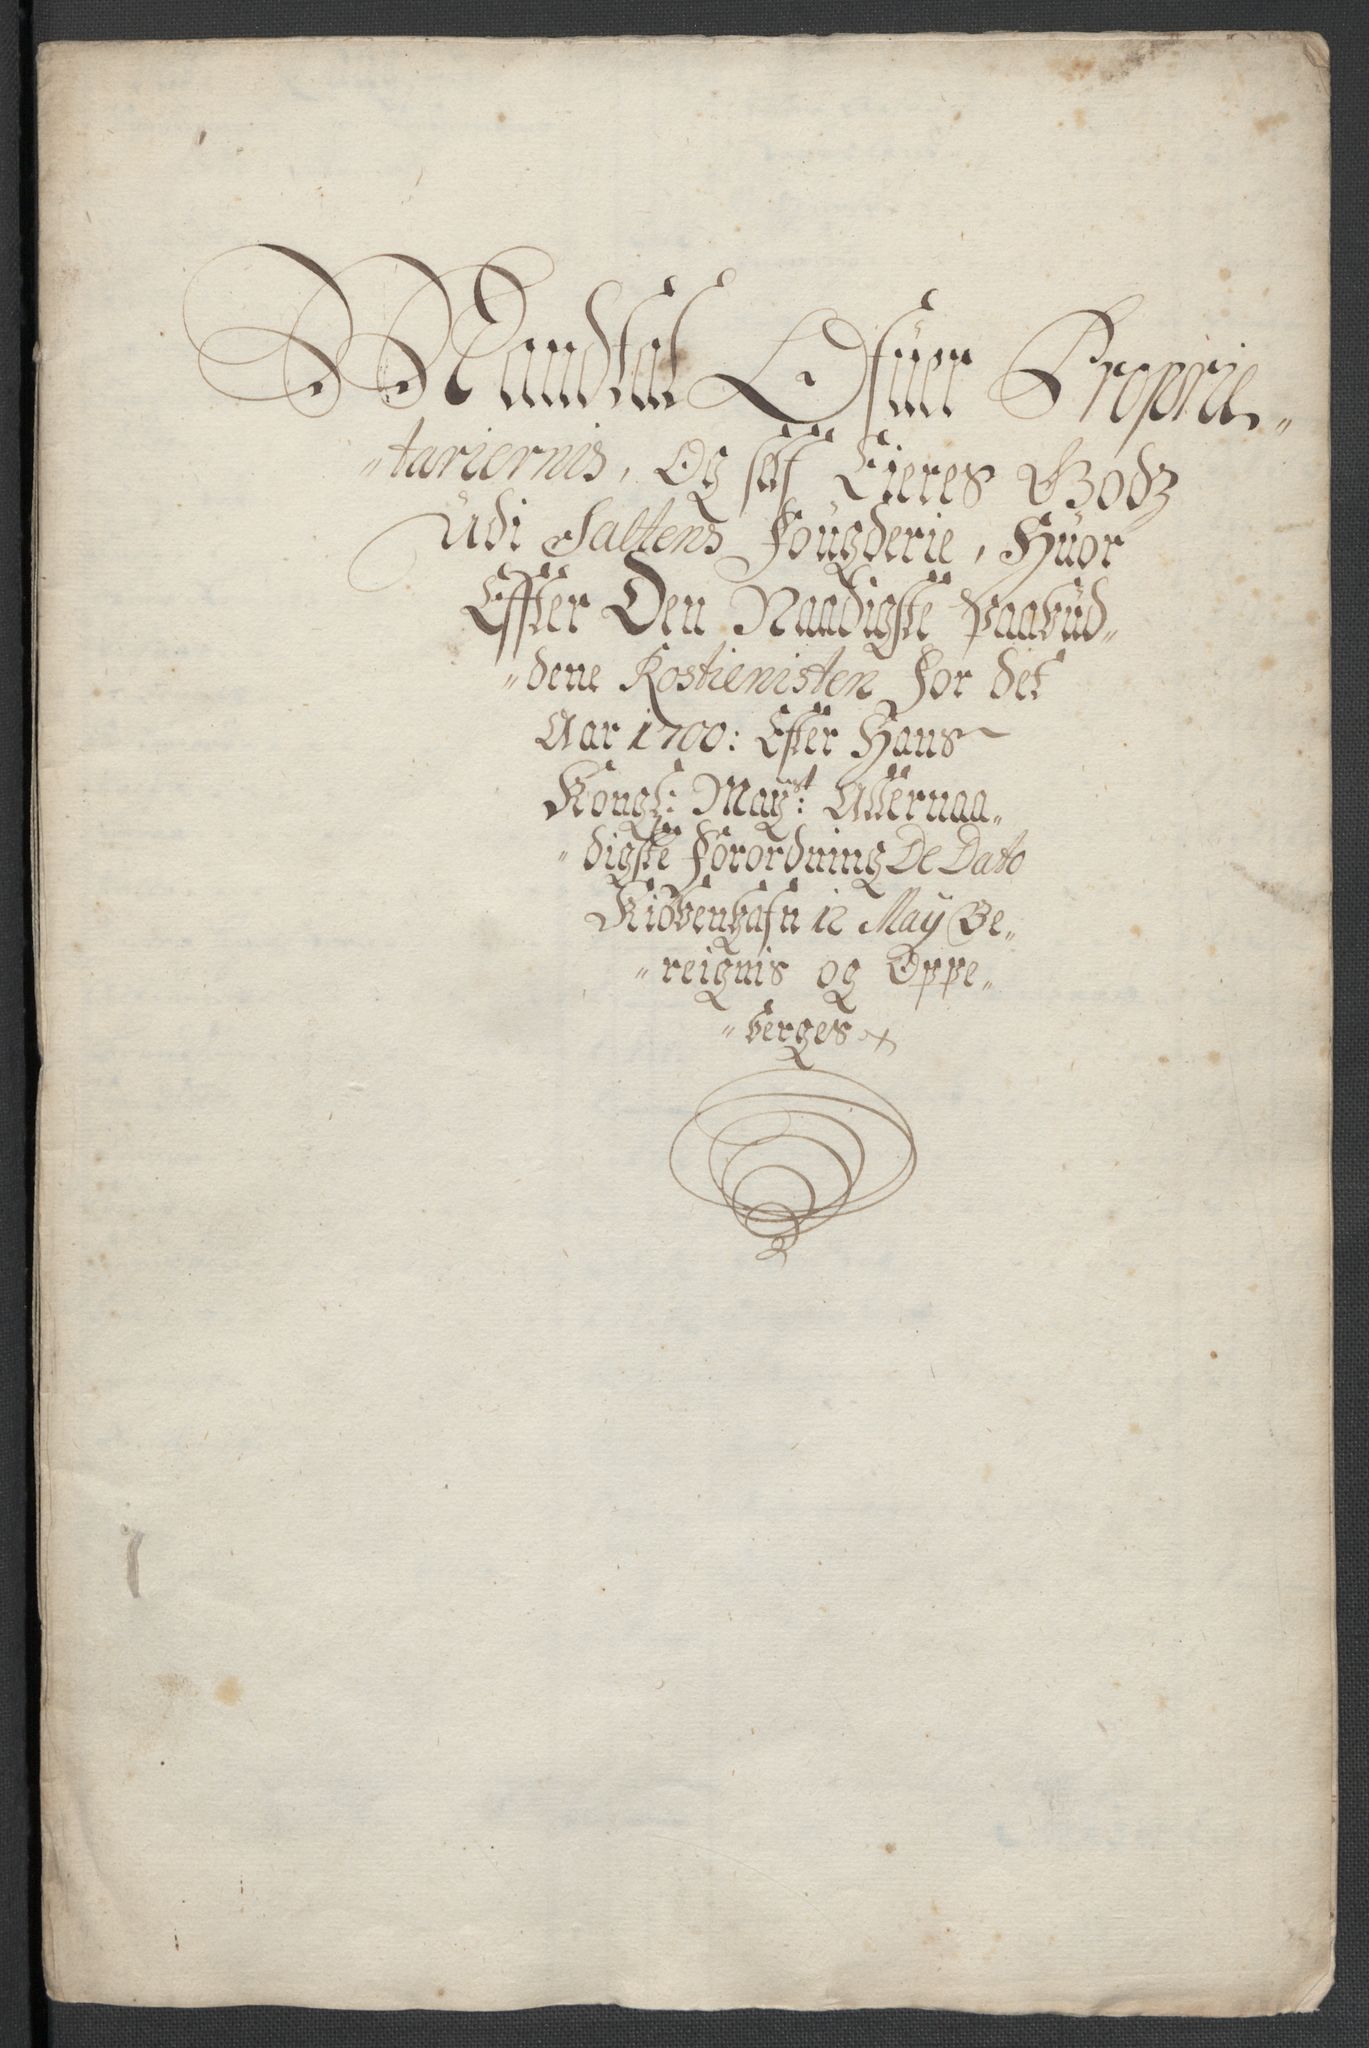 Mandtal Ofuer Proprie„
„tariernis, Og self Eieres Godz
Udi Saltens Fougderie, Huor
Effter Den Naadigste Paabud„
„dene Rostienisten for det
Aar 1700: Efter Hans
Kongl: Mayst: Allernaa„
„digste Forordning De Dato
Kiöbenhafn 12 May Be„
„reignis og Oppe„
„berges